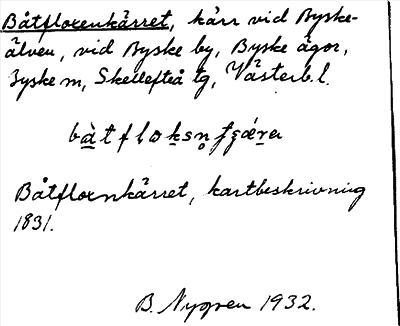 Båtfloxenkärret, kärr vid Byske-
älven, vid Byske by, Byske ägor,
Byske sn, Skellefteå tg, Västerb. l.
Båtfloxnkärret, kartbeskrivning
1831.
B. Nygren 1932.